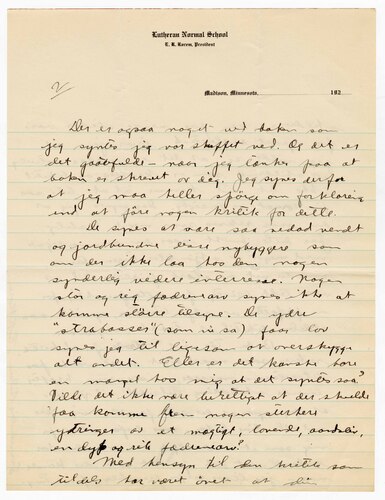 Lutheran Normal School
E. R. Lorem, President
2/
Madison, Minnesota, 192
Der er ogsaa noget ved boken som
jeg syntes jeg var skuffet ved. Og det er
det gaatefulde – naar jeg tænker paa at
boken er skrevet av dig. Jeg synes derfor
at jeg maa heller spörge om forklaring
end at före nogen kritik for dette.
De synes at være saa nedad vendt
og jordbundne disse nybyggere som
om der ikke laa hos dem nogen
synderlig videre interesse. Nogen
stor og rig fædrenearv synes ikke at
komme större tilsyne. De ydre
"strabasser" (som vi sa) faar lov
synes jeg til likesom at overskygge
alt andet. Ellers er det kanske bare
en mangel hos mig at det syntes saa?
Vilde det ikke være berettiget at der skulde
faa komme frem nogen sterkere
ytringer av et mægtigt, lovende, aandeliv,
en dyp og rik fædrenearv?
Med hensyn til den kritik som
tildels har været övet at di